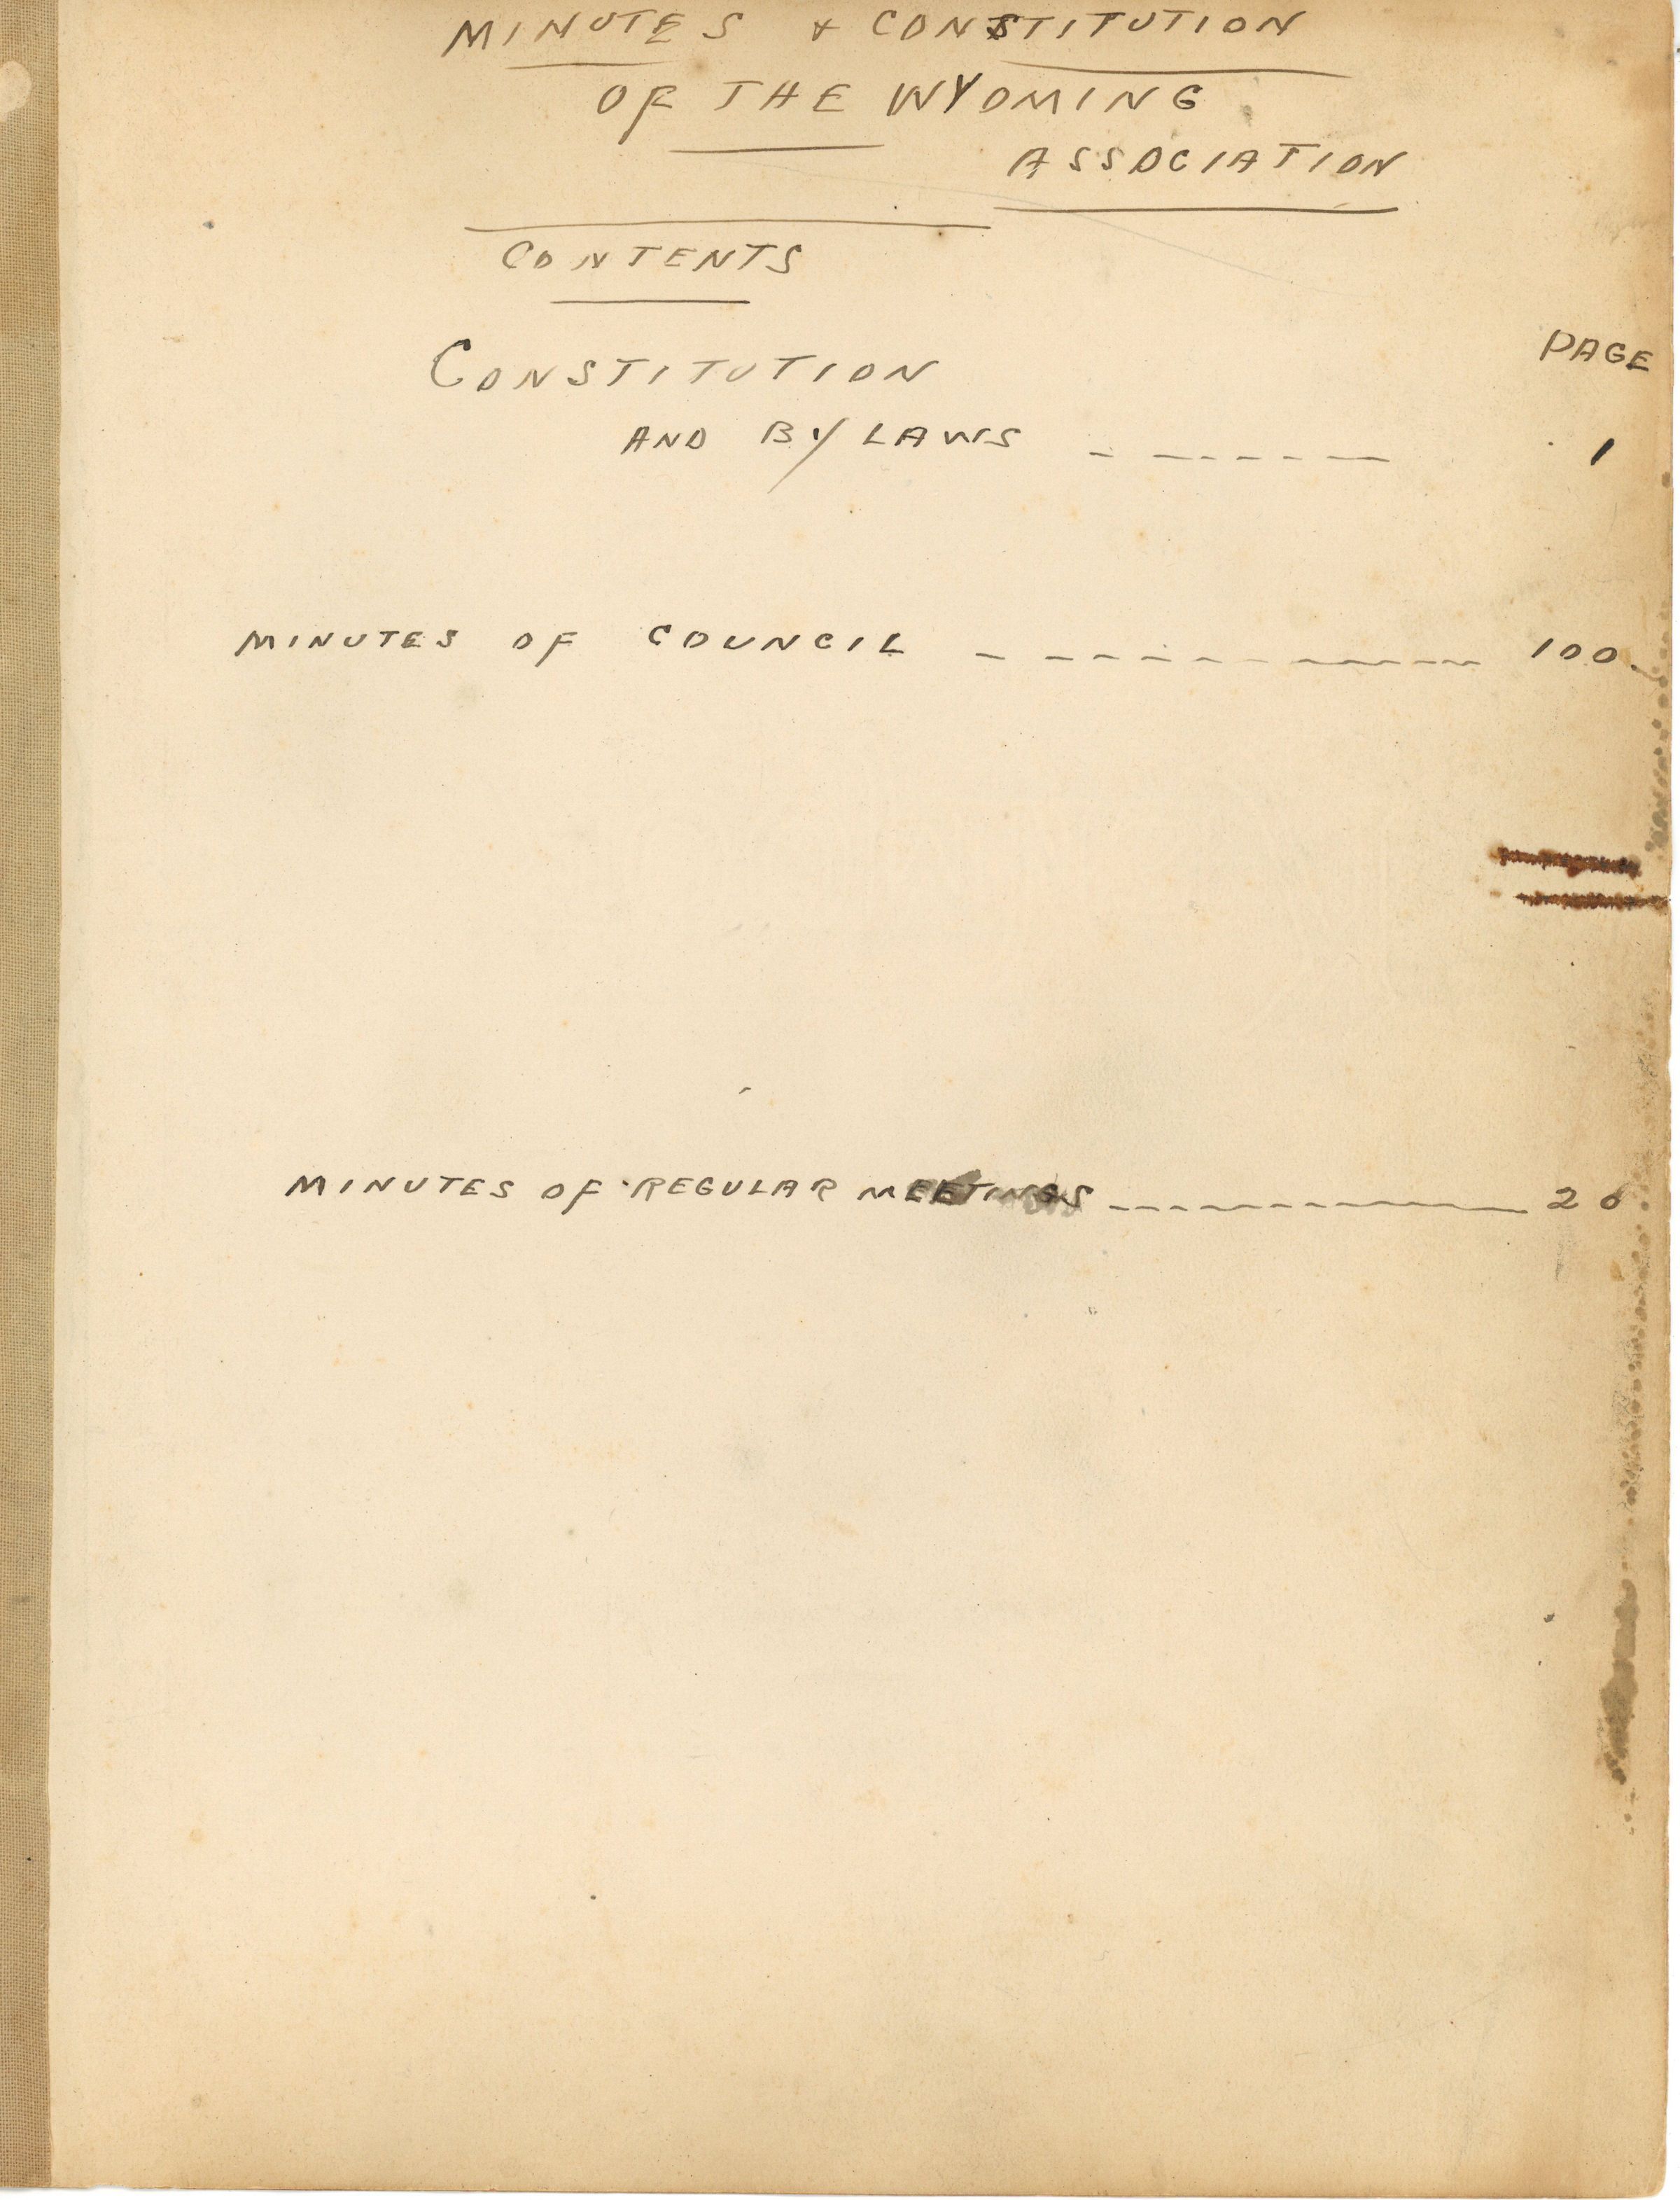 MINUTES & CONSTITUTION
OF THE WYOMING
ASSOCIATION
CONTENTS
PAGE
CONSTITUTION
AND BY LAWS - - - - - - - 1
MINUTES OF COUNCIL - - - - - - - - - - - - 100
MINUTES OF REGULAR MEETINGS - - - - - - - - - - - -